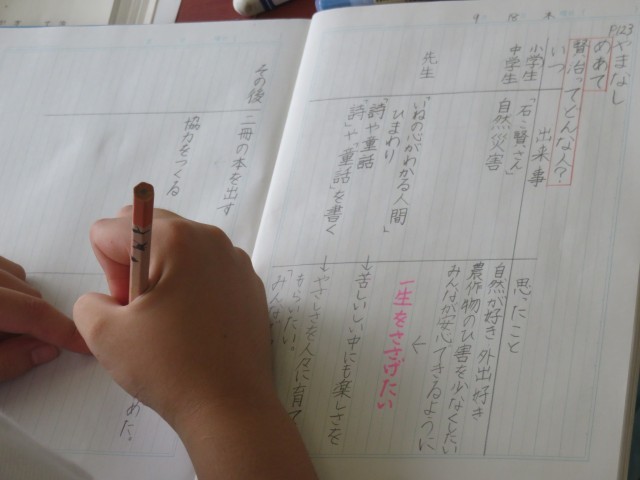 P123
やまなし
めあて
賢治ってどんな人?
いつ
出来事
思ったこと
小学生
「石こ賢さん」
自然が好き 外出好き
中学生
自然災害
農作物のひ害を少なくしたい
みんなが安心できるように
←
一生をささげたい
先生
「いねの心がわかる人間」
ひまわり
「詩や童話
→苦しいしい中にも楽しさを
「詩」や「童話」を書く
→やさしさを人々に育て
もらいたい。
みんな
その後
二冊の本を出す
協力をつくる
めた。